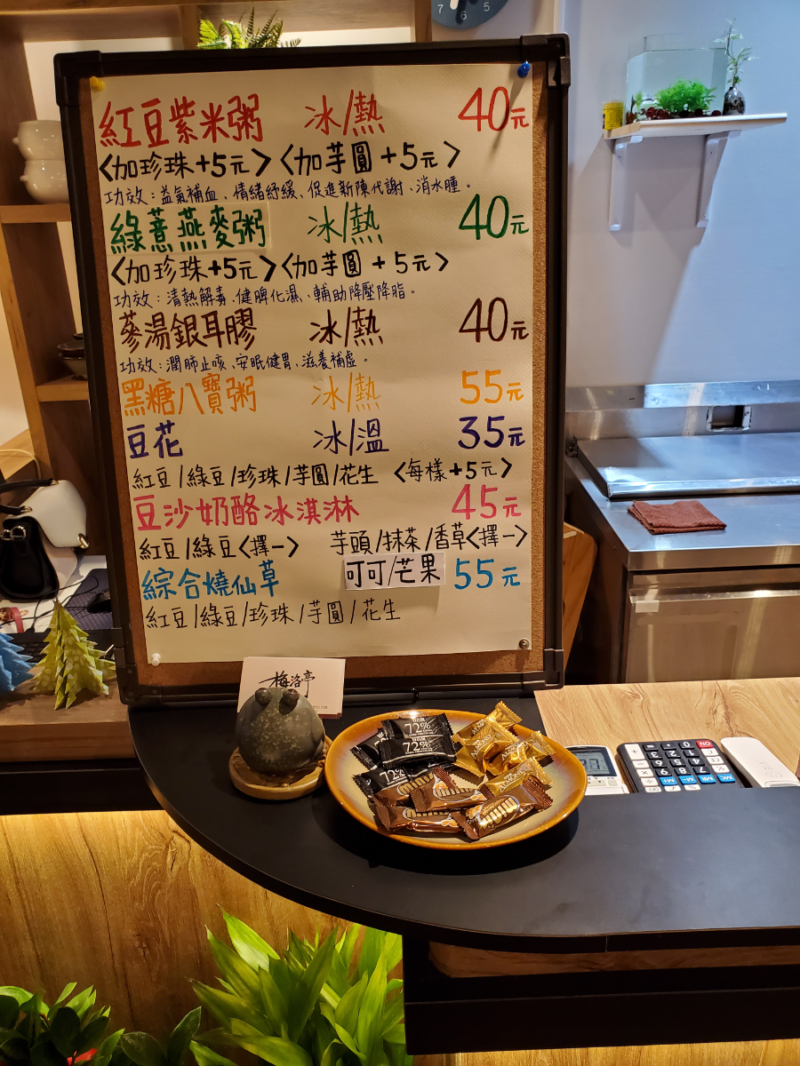 紅豆紫米粥 冰/熱 40元
<加珍珠+5元> <加芋圓+5元>
功效:益氣補血、情緒紓緩、促進新陳代謝、消水腫。
綠薏燕麥粥 冰/熱 40元
<加珍珠+5元> <加芋圓+5元>
功效:清熱解毒、健脾化濕、輔助降壓降脂。
蔘湯銀耳膠 冰/熱 40元
功效:潤肺止咳、安眠健胃、滋養補虛。
黑糖八寶粥 冰/熱 55元
豆花 冰/溫 35元
紅豆/綠豆/珍珠/芋圓/花生 <每樣+5元>
豆沙奶酪冰淇淋 45元
紅豆/綠豆<擇一> 芋頭/抹茶/香草<擇一>
可可/芒果
綜合燒仙草 55元
紅豆/綠豆/珍珠/芋圓/花生
梅洛亭
72%
72%
72%
7 6 5